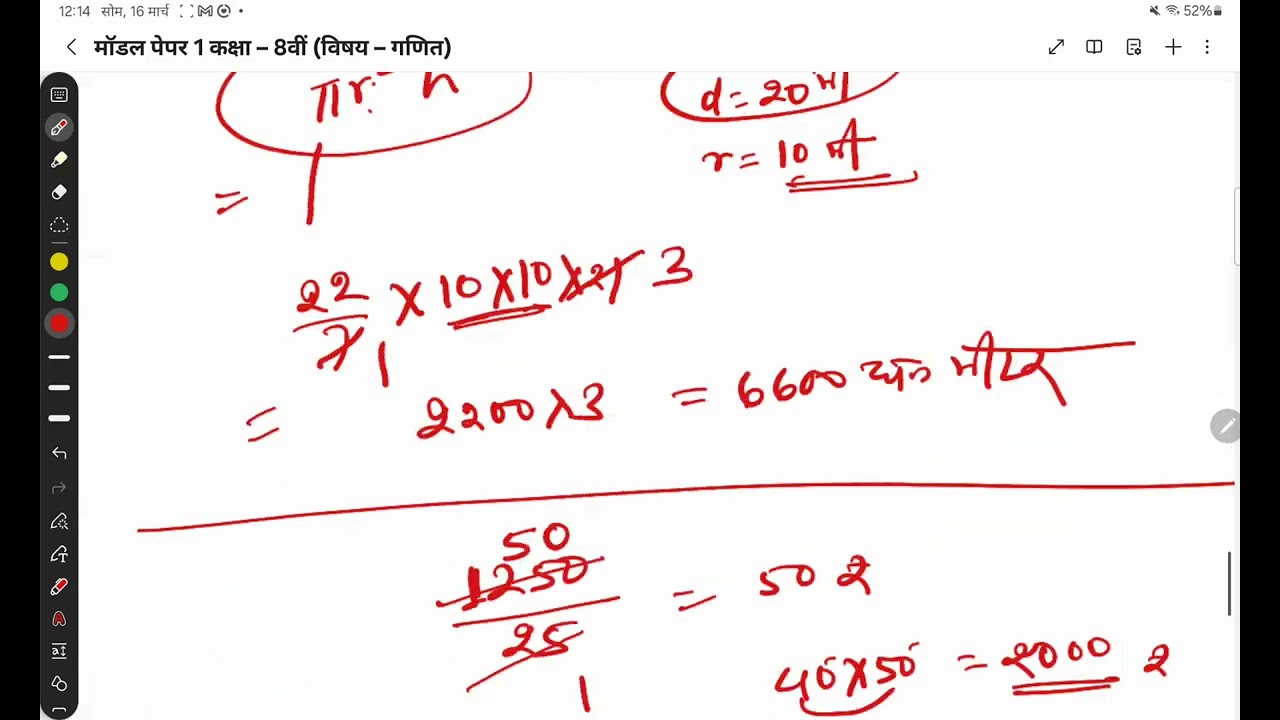 12:14 सोम, 16 मार्च 52%
मॉडल पेपर 1 कक्षा – 8वीं (विषय – गणित)
πr² h
d = 20 मी
r = 10 मी
=
22/7 1 × 10 × 10 × 21 3
= 2200 × 3 = 6600 घन मीटर
50
1250/25 = 50 रु
1
40 × 50 = 2000 रु